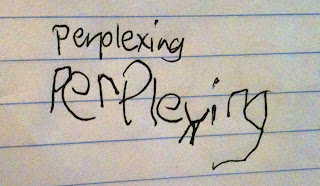 Perplexing
Perplexing